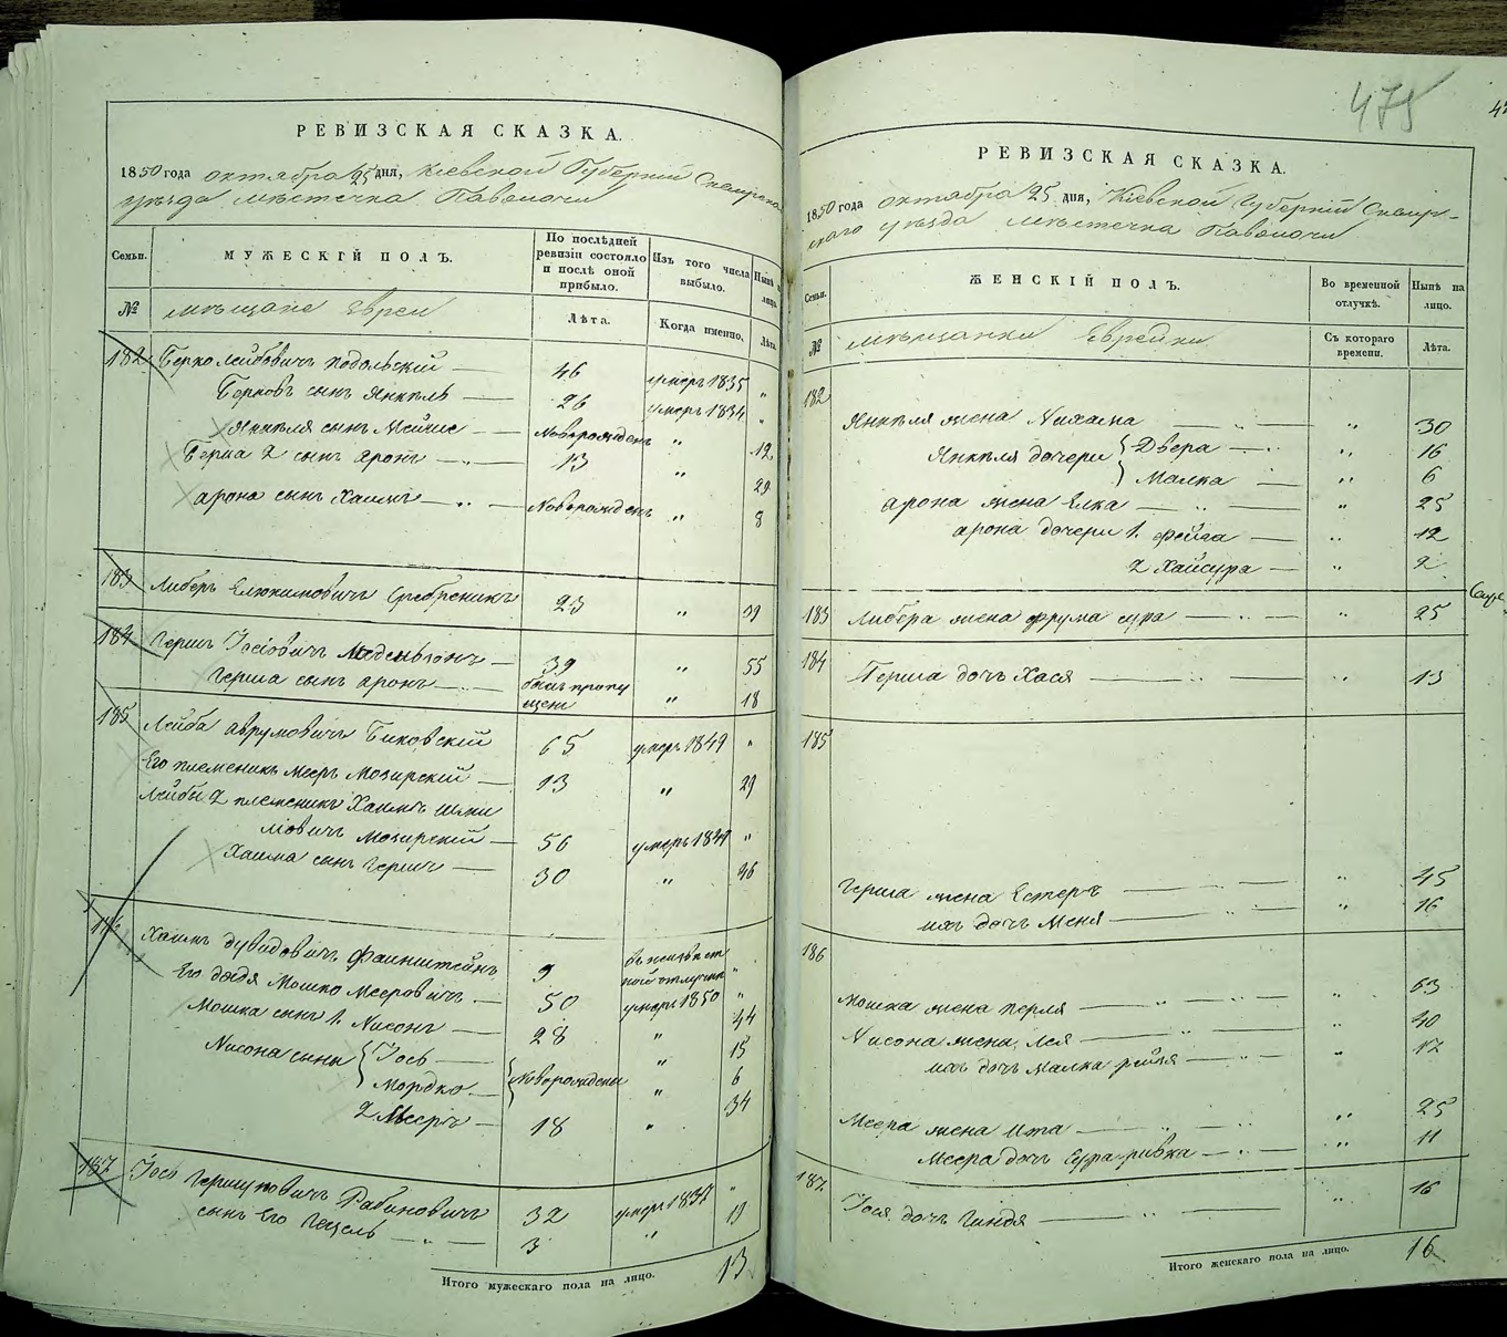 РЕВИЗСКАЯ СКАЗКА.
1850 года октября 25 дня, Кіевской Губерніи Сквирска
уѣзда мѣстечка Паволочи
Семьи.
МУЖЕСКІЙ ПОЛЪ.
По послѣдней ревизіи состояло и послѣ оной прибыло.
Изъ того числа выбыло.
Нынѣ на лицо.
№
мѣщане Евреи
Лѣта.
Когда именно.
Лѣта.
182 Берко Лейбовичъ Подольский — 46 умеръ 1835 "
Берковъ сынъ Янкель — 26 умеръ 1834 "
Янкеля сынъ Мейчис — Новорожденъ " 12
Берка 2 сынъ Аронъ — 13 " 29
Арона сынъ Хаимъ — Новорожденъ " 8
183 Либеръ Сребреникъ 23 " 39
184 Герш Іосіовичъ — 39 " 55
Герша сынъ Аронъ — былъ пропу
щенъ " 18
185 Лейба Аврумовичъ Биковскій 65 умеръ 1849 "
Его племеникъ Меер Мозирский — 13 " 29
Лейбы 2 племеникъ Хаимъ Шми
ліовичъ Мозирский — 56 умеръ 1849 "
Хаима сынъ Гершъ — 30 " 46
186 Хаимъ Дувидовичъ Фаинштейнъ 9 въ неизвѣст
ной отлучке "
Его дядя Мошко Мееровичъ — 50 умеръ 1850 "
Мошка сынъ 1. Нисонъ — 28 " 44
Нисона сыны { Іось — " 15
Мордко — } Новорождены " 6
2 Мееръ — 18 " 34
187 Іось Гершковичъ Рабиновичъ 32 умеръ 1837 "
сынъ Его Гецель — 3 " 19
Итого мужескаго пола на лицо. 13
475
РЕВИЗСКАЯ СКАЗКА.
1850 года октября 25 дня, Кіевской Губерніи Сквир-
скаго уѣзда мѣстечка Паволочи
Семьи.
ЖЕНСКІЙ ПОЛЪ.
Во временной отлучкѣ.
Нынѣ на лицо.
№
мѣщанки Еврейки
Съ котораго времени.
Лѣта.
182
Янкеля жена Нихама — " 30
Янкеля дочери { Двера — " 16
Малка — " 6
Арона жена Елка — " 25
Арона дочери 1. Фейга — " 12
2 Хайсура — " 2
183 Либера жена Фрума Сура — " 25
184 Герша дочь Хася — " 13
185
Герша жена Естеръ — " 45
ихъ дочь Меня — " 16
186
Мошка жена Перля — " 53
Нисона жена Лея — " 40
ихъ дочь Малка Рейзя — " 12
Меера жена Ита — " 25
Меера дочь Сура Ривка — " 11
187
Іося дочь Гиндя — " 16
Итого женскаго пола на лицо. 16